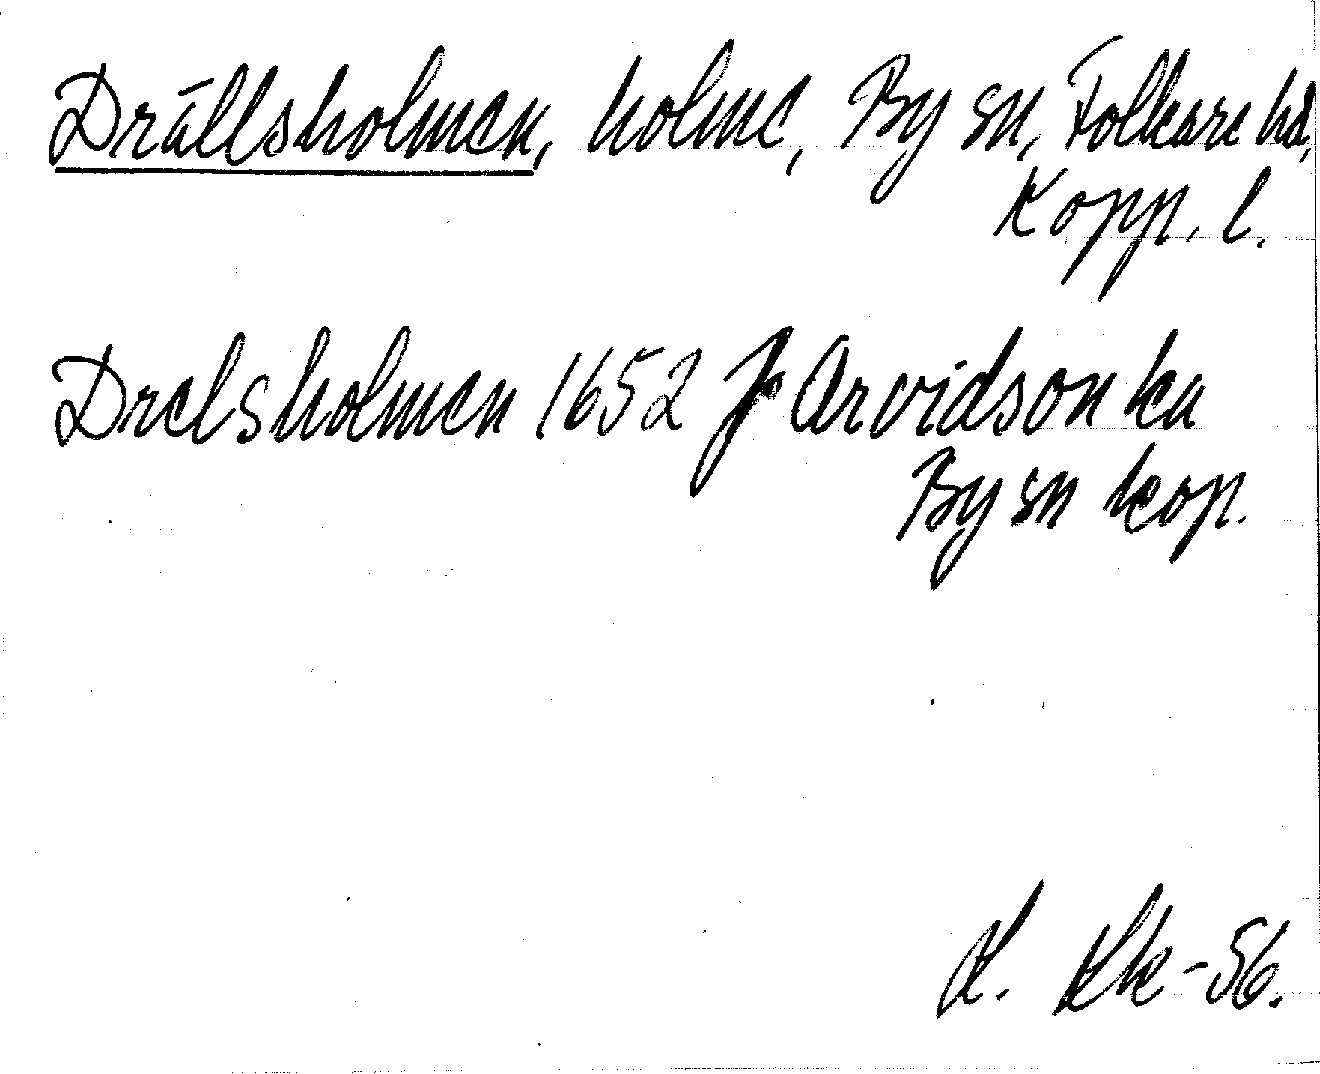 Drällsholmen, holme, By sn, Folkare hd,
Kopp. l.
Drelsholmen 1652 J Arvidson ka
By sn kop.
K. -56.